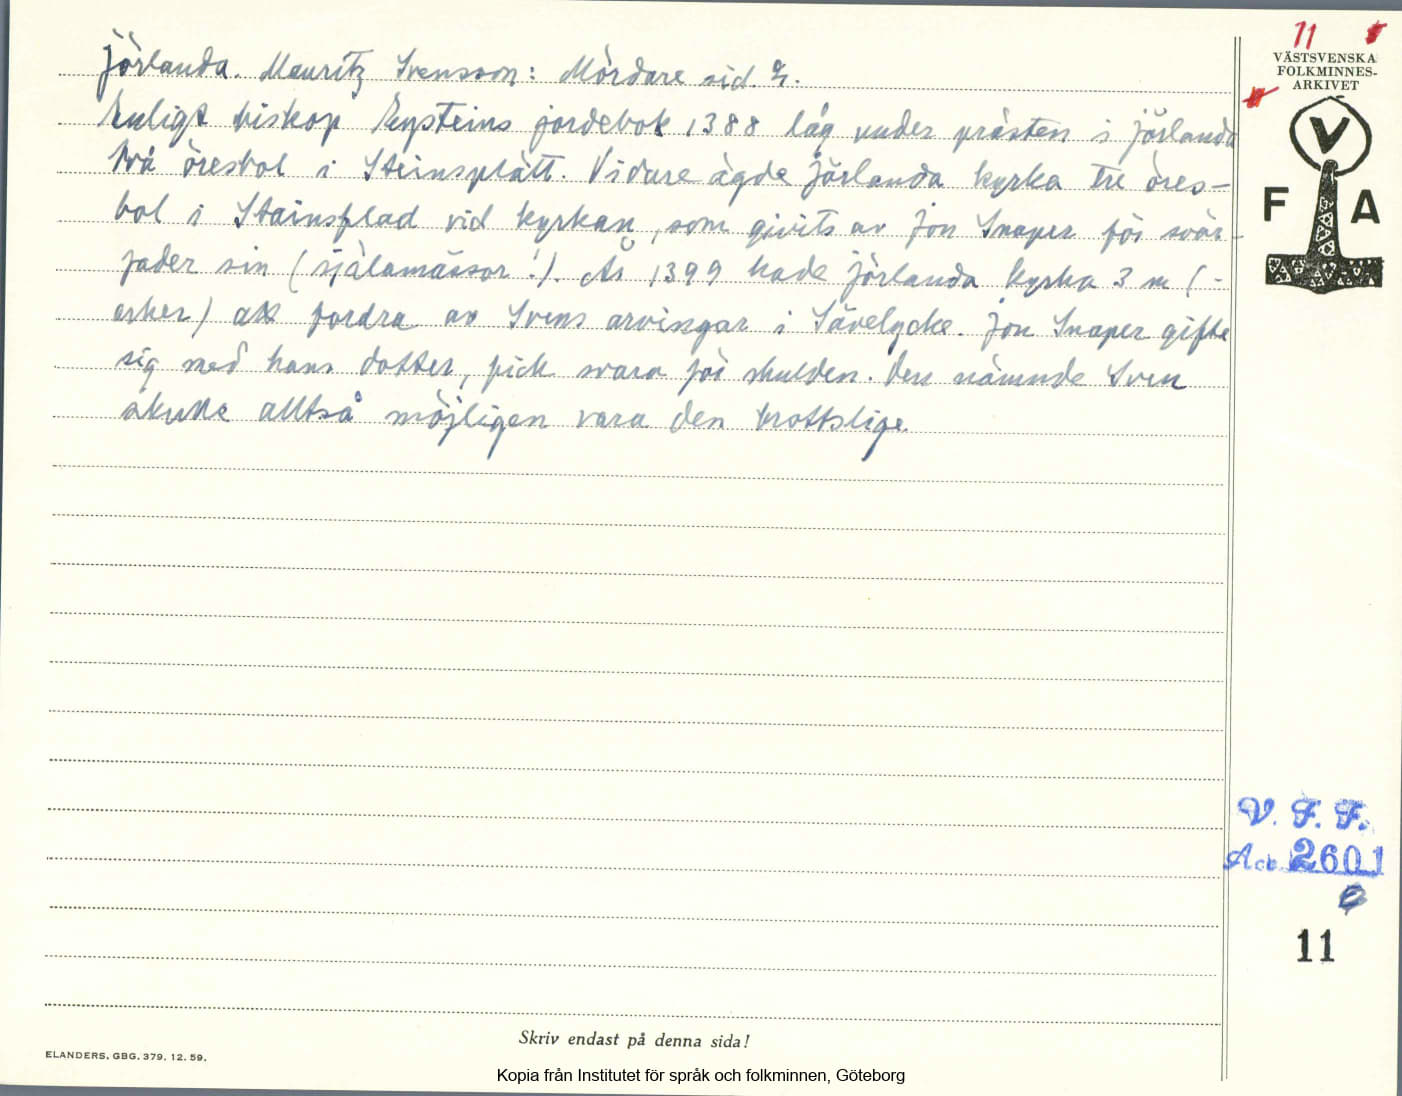 Jörlanda. Mauritz Svensson: Mördare sid. 2.
Enligt biskop Eysteins jordebok 1388 låg under prästen i Jörlanda
två öresbol i Steinsplätt. Vidare ägde Jörlanda kyrka tre öres-
bol i Stainsflad vid kyrkan, som givits av Jon Snaper för svär-
fader sin (själamässor!). År 1399 hade Jörlanda kyrka 3 m (-
arker) att fordra av Svens arvingar i Sävelycke. Jon Snaper gifte
sig med hans dotter, fick svara för skulden. Den nämnde Sven
skulle alltså möjligen vara den brottslige.
11
VÄSTSVENSKA
FOLKMINNES-
ARKIVET
V
F A
V. F. F.
Acc. 2601
11
Skriv endast på denna sida!
ELANDERS, GBG. 379. 12. 59.
Kopia från Institutet för språk och folkminnen, Göteborg